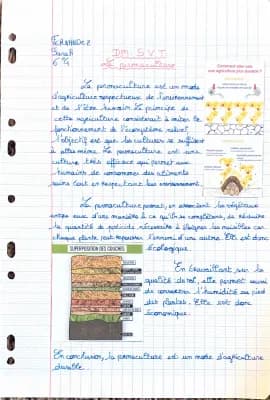 Sarah
6°4
DM S.V.T
La permaculture
La permaculture est un mode
d'agriculture respectueux de l'environnement
et de l'être humain. Le principe de
cette agriculture consisterait à imiter le
fonctionnement de l'écosystème naturel.
l'objectif est que la culture se suffisent
à elle même. La permaculture est une
culture très efficace qui permet aux
humains de consommer des aliments
sains tout en respectant les environnement.
Comment aller vers
une agriculture plus durable ?
La permaculture permet, en associant les végétaux
entre eux d'une manière à ce qu'ils se complètent, de réduire
la quantité de pesticides nécessaire à éloigner les nuisibles car
chaque plante peut repousser l'ennemi d'une autre. Elle est donc
écologique.
SUPERPOSITION DES COUCHES
En travaillant sur la
qualité du sol, elle permet aussi
de conserver l'humidité au pied
des plantes. Elle est donc
économique.
En conclusion, la permaculture est un mode d'agriculture
durable.